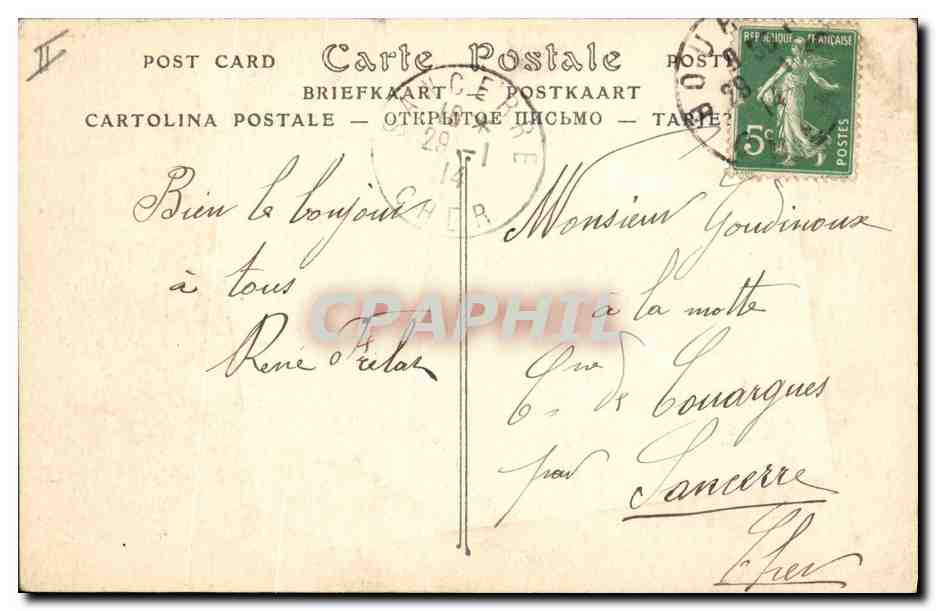 II
POST CARD Carte Postale POST
BRIEFKAART — POSTKAART
CARTOLINA POSTALE — ОТКРЫТОЕ ПИСЬМО — TARJE
SANCERRE
19 *
29 - 1
14
CHER
BOUR
REPUBLIQUE FRANÇAISE
5c
POSTES
Bien le bonjour
à tous
René
Monsieur Goudinoux
à la motte
Cne de Couargues
par Sancerre
Cher
CPAPHIL